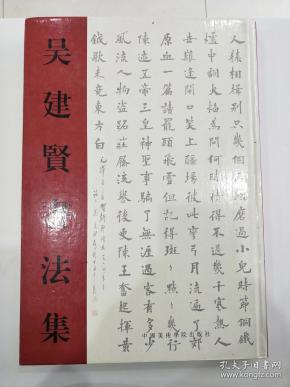 吴建賢書法集
人猿相揖别只幾個石頭磨過小兒時節銅鐵
爐中翻火焰為問何時猜得不過幾千寒熱人
世難逢開口笑上疆場彼此彎弓月流遍了郊
原血一篇讀罷頭飛雪但記得斑斑點點幾行
陳迹五帝三皇神聖事騙了無涯過客有多少
風流人物盗跖莊蹻流譽後更陳王奮起揮黄
鉞歌未竟東方白
中國美術學院出版社
孔夫子旧书网